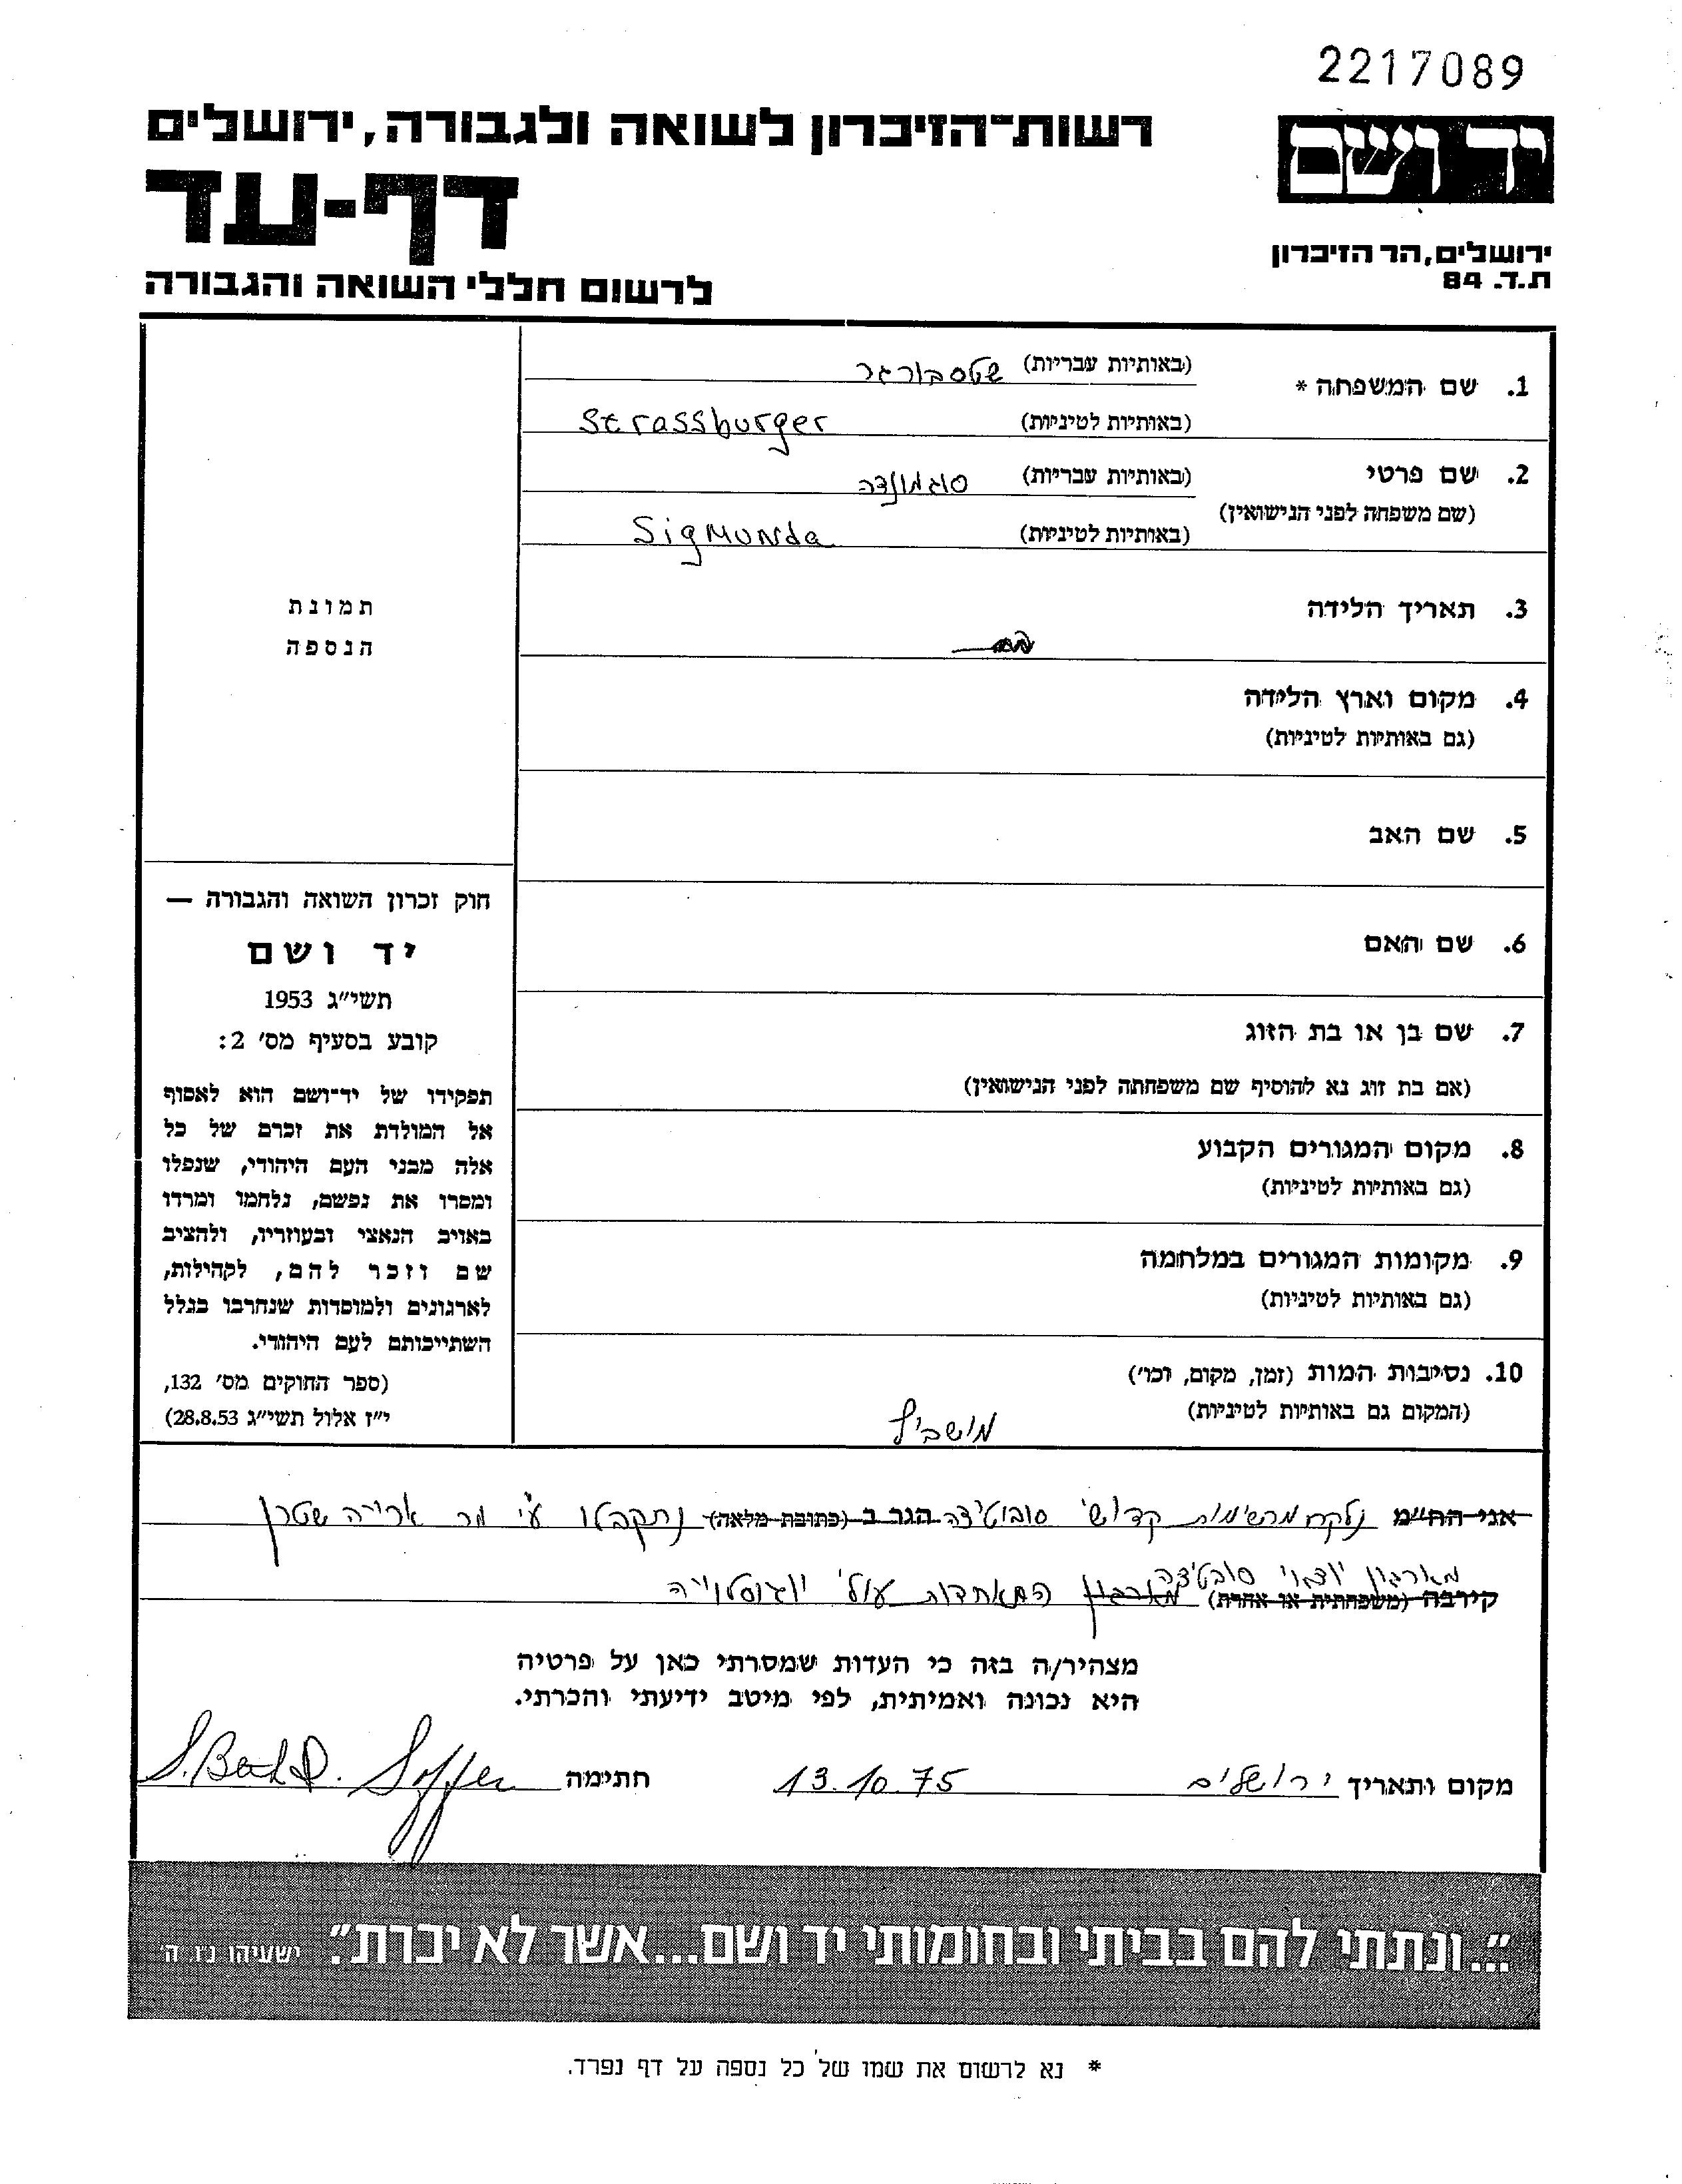 2217089
רשות-הזיכרון לשואה ולגבורה, ירושלים
יד ושם
דף-עד
ירושלים, הר הזיכרון
ת.ד. 84
לרשום חללי השואה והגבורה
1. שם המשפחה * (באותיות עבריות) שטסבורגר
(באותיות לטיניות) Strassburger
2. שם פרטי (באותיות עבריות) סוגמונדה
(שם משפחה לפני הנישואין)
(באותיות לטיניות) Sigmunda
3. תאריך הלידה
4. מקום וארץ הלידה
(גם באותיות לטיניות)
5. שם האב
6. שם האם
7. שם בן או בת הזוג
(אם בת זוג נא להוסיף שם משפחתה לפני הנישואין)
8. מקום המגורים הקבוע
(גם באותיות לטיניות)
9. מקומות המגורים במלחמה
(גם באותיות לטיניות)
10. נסיבות המות (זמן, מקום, וכו')
(המקום גם באותיות לטיניות)
תמונת
הנספה
חוק זכרון השואה והגבורה —
יד ושם
תשי"ג 1953
קובע בסעיף מס' 2:
תפקידו של יד-ושם הוא לאסוף
אל המולדת את זכרם של כל
אלה מבני העם היהודי, שנפלו
ומסרו את נפשם, נלחמו ומרדו
באויב הנאצי ובעוזריו, ולהציב
שם וזכר להם, לקהילות,
לארגונים ולמוסדות שנחרבו בגלל
השתייכותם לעם היהודי.
(ספר החוקים מס' 132,
י"ז אלול תשי"ג 28.8.53)
אני החי"מ נלקח מרשימות קדושי סובוטיצה הגר ב (כתובת מלאה) נתקבלו ע"י מר אריה שטרן
מארגון יוצאי סובטיצה
קירבה (משפחתית או אחרת) מארגון התאחדות עולי יוגוסלוייה
מצהיר/ה בזה כי העדות שמסרתי כאן על פרטיה
היא נכונה ואמיתית, לפי מיטב ידיעתי והכרתי.
מקום ותאריך ירושלים 13.10.75 חתימה Soffer
"...ונתתי להם בביתי ובחומותי יד ושם...אשר לא יכרת". ישעיהו נ"ו, ה'
* נא לרשום את שמו של כל נספה על דף נפרד.